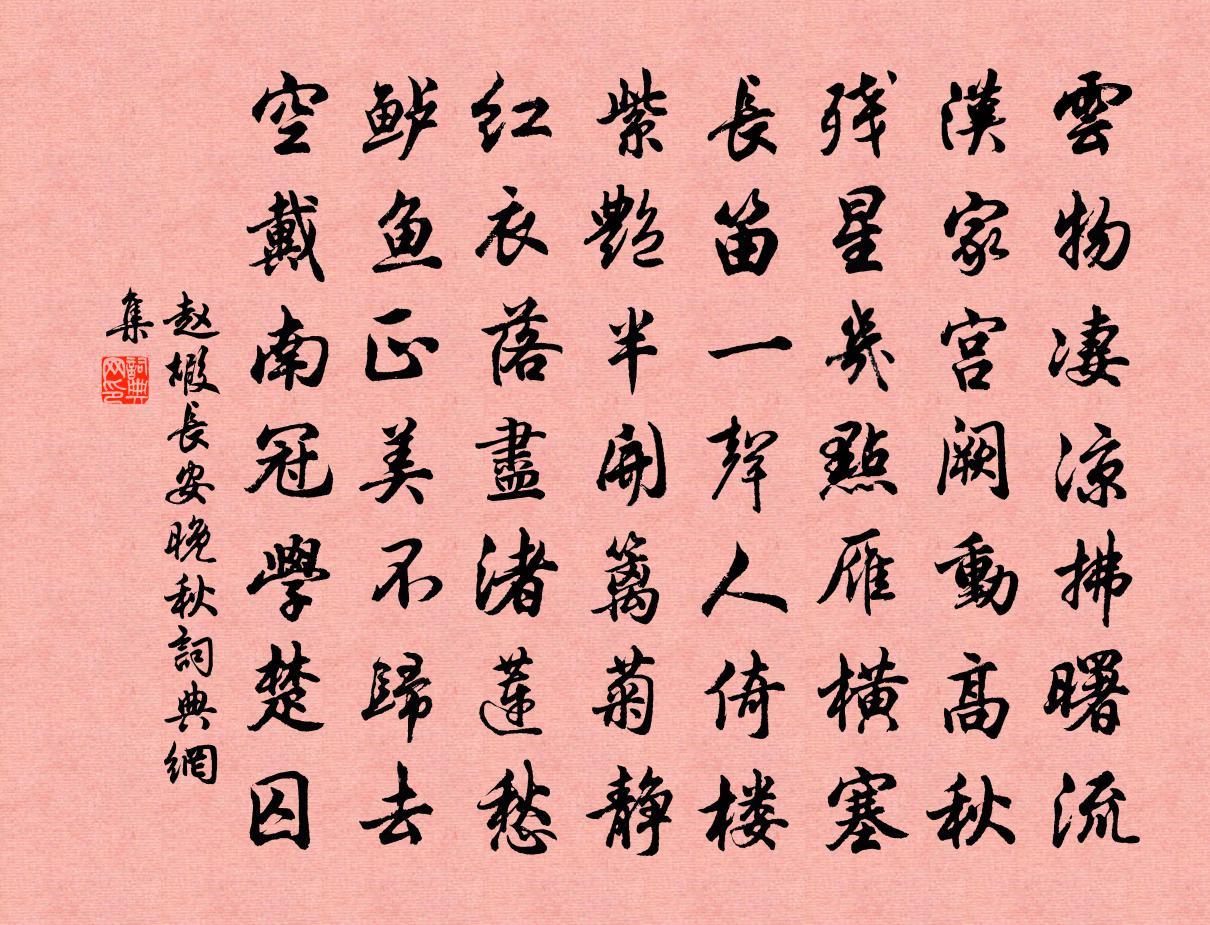 雲物凄涼拂曙流
漢家宫阙動高秋
残星幾點雁横塞
長笛一聲人倚楼
紫艷半開篱菊静
红衣落盡渚蓮愁
鲈魚正美不歸去
空戴南冠學楚囚
赵嘏長安晚秋詞典網
集
詞典网印